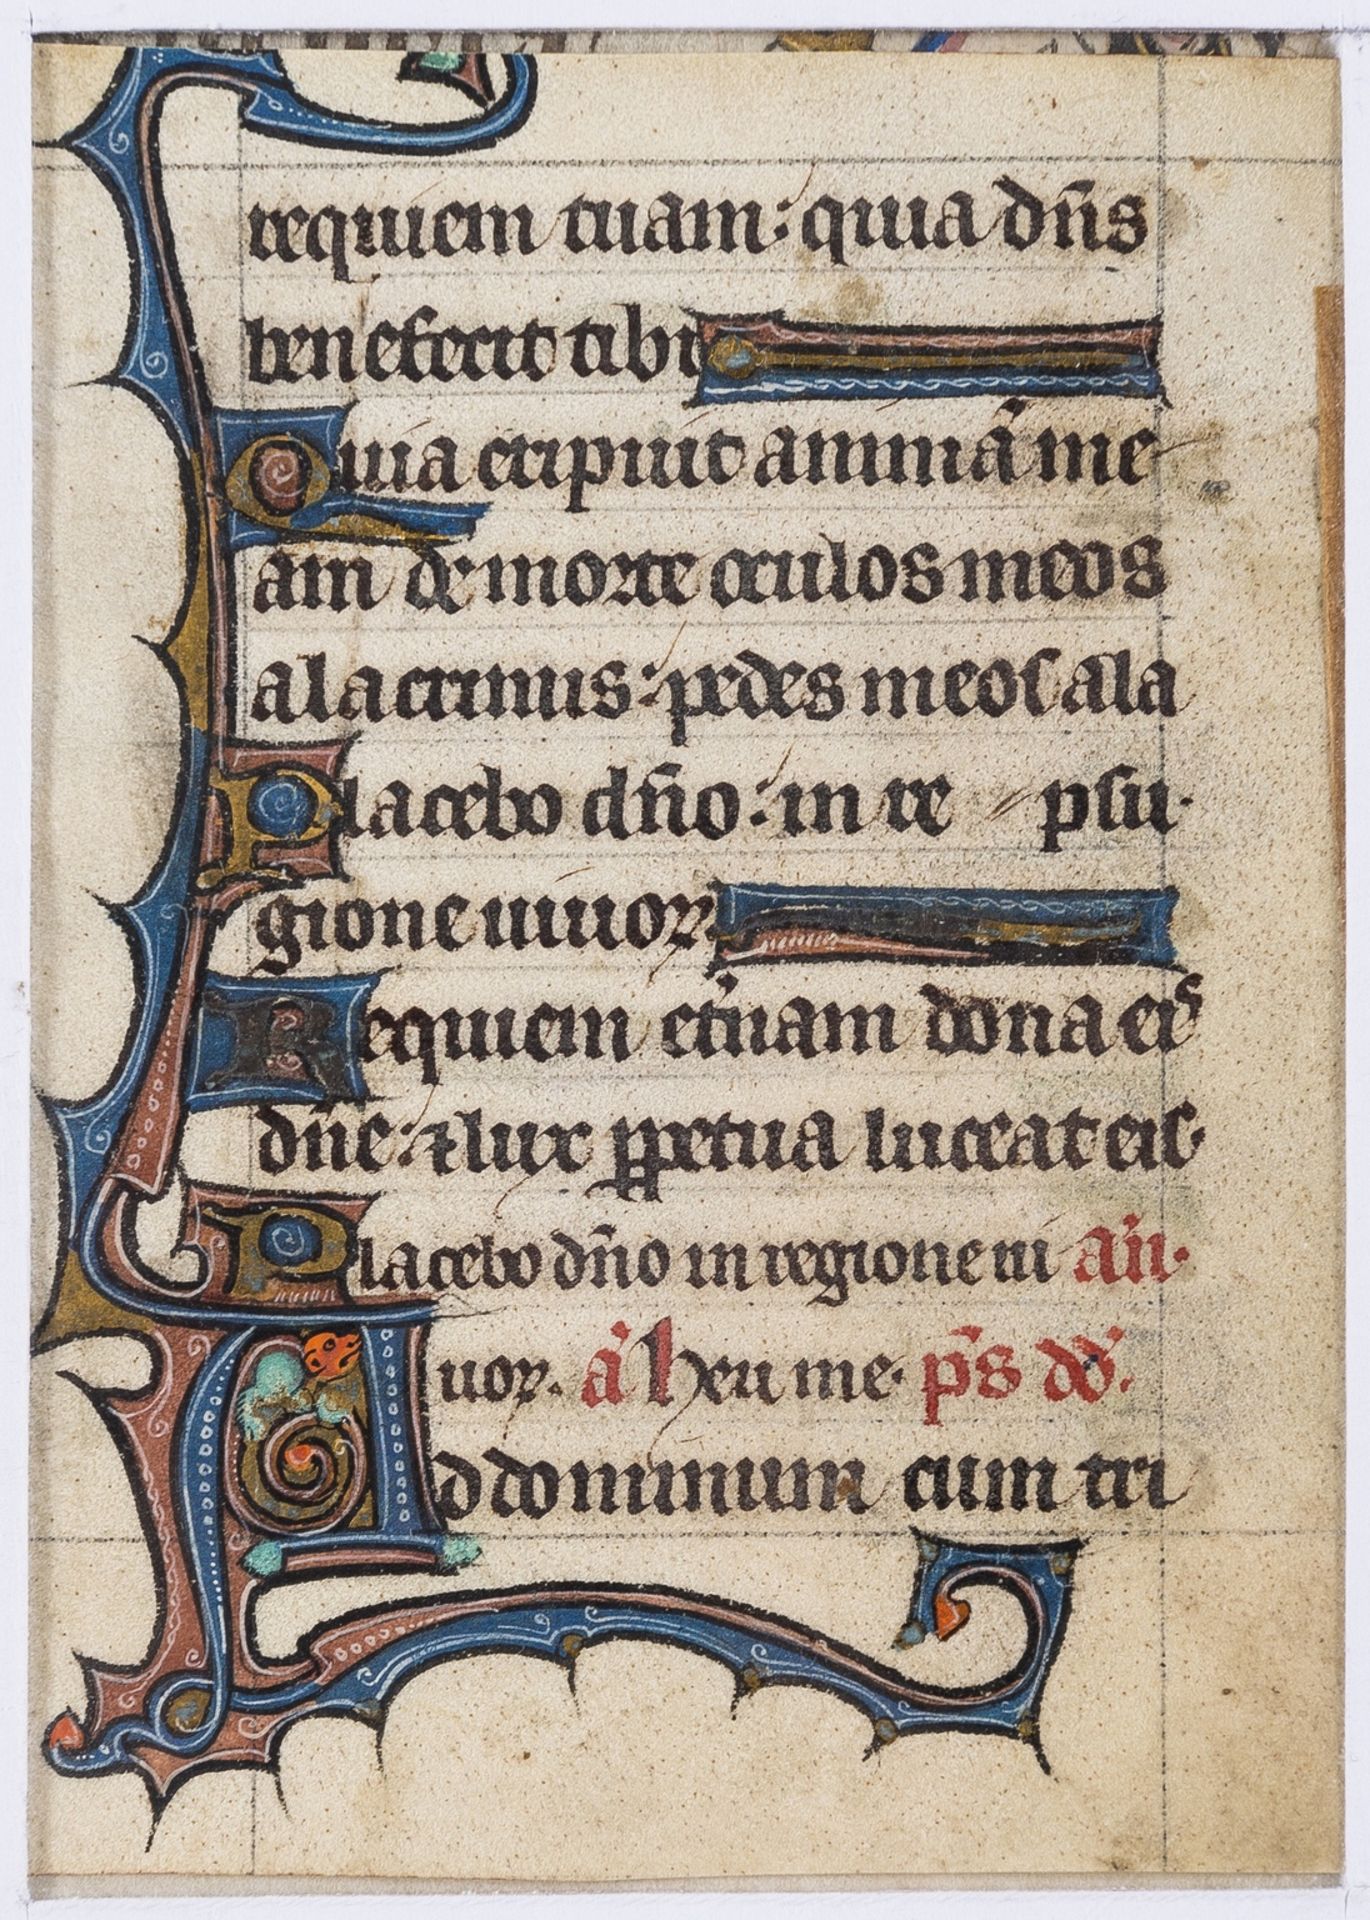 requiem tuam: quia dn̄s
benefecit tibi
Quia eripuit animā me
am de morte oculos meos
a lacrimis: pedes meos a la
Placebo dn̄o: in re psu·
gione uiuoꝝ
Requiem et̾nam dona eis
dn̄e: ⁊ lux ꝑpetua luceat eis·
Placebo dn̄o in regione ui an̄·
uoꝝ· a̾ heu me· p̄s dd̄·
Ad dominum cum tri